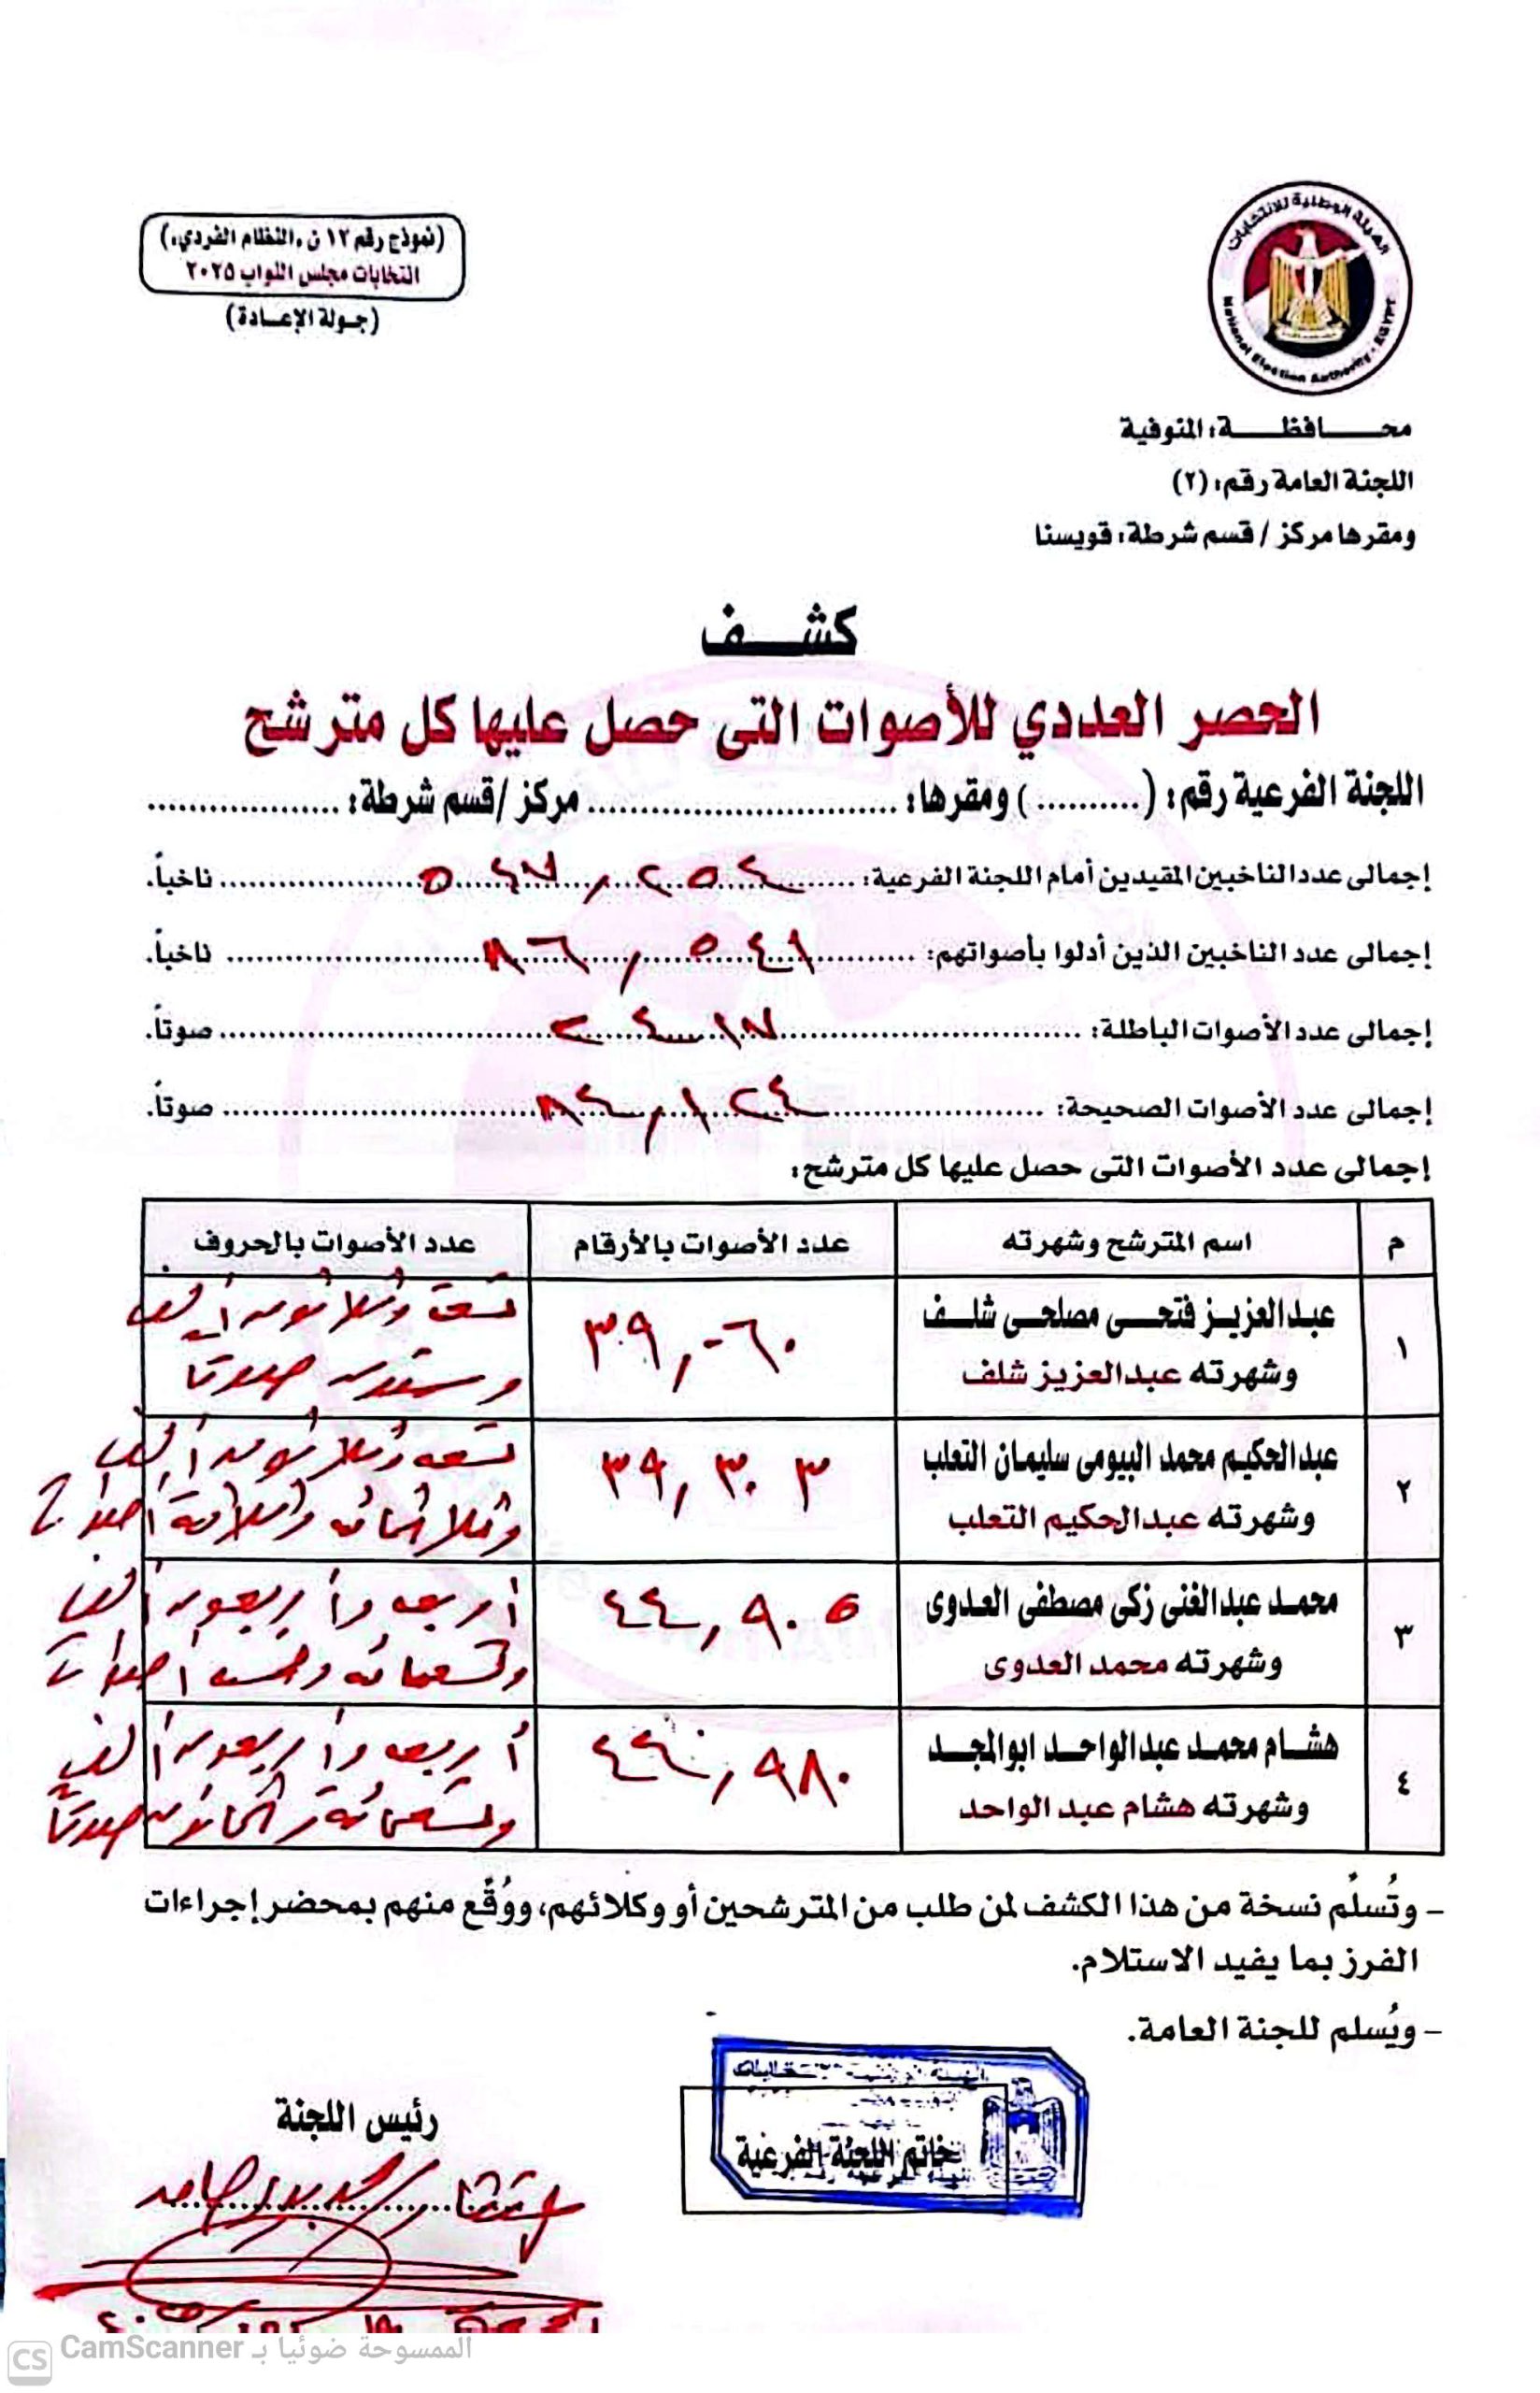 الهيئة الوطنية للانتخابات
National Election Authority - EGYPT
(نموذج رقم ١٢ ن، النظام الفردي،)
انتخابات مجلس النواب ٢٠٢٥
(جولة الإعادة)
محـــافظـــة: المنوفية
اللجنة العامة رقم: (٢)
ومقرها مركز / قسم شرطة: قويسنا
كشـــف
الحصر العددي للأصوات التى حصل عليها كل مترشح
اللجنة الفرعية رقم: (..........) ومقرها: .............................. مركز /قسم شرطة: ...................
إجمالى عدد الناخبين المقيدين أمام اللجنة الفرعية: ناخباً.
إجمالى عدد الناخبين الذين أدلوا بأصواتهم: ٨٦,٥٤١ ناخباً.
إجمالى عدد الأصوات الباطلة: ٢٤١٧ صوتاً.
إجمالى عدد الأصوات الصحيحة: ٨٤,١٢٤ صوتاً.
إجمالى عدد الأصوات التى حصل عليها كل مترشح:
م اسم المترشح وشهرته عدد الأصوات بالأرقام عدد الأصوات بالحروف
١ عبدالعزيـز فتحـــى مصلحـى شلــف ٣٩,٠٦٠ تسعة وثلاثون ألف
وشهرته عبدالعزيز شلف وستون صوتا
٢ عبدالحكيـم محمد البيومى سليمان التعلب ٣٩,٣٠٣ تسعه وثلاثون ألف
وشهرته عبدالحكيم التعلب وثلاثمائه وثلاثة أصوات
٣ محمـد عبدالغنى زكى مصطفى العـدوى ٤٤,٩٠٥ أربعه وأربعون ألف
وشهرته محمد العدوى وتسعمائه وخمسه أصوات
٤ هشـــام محمـد عبدالواحـد ابوالمجـد ٤٤,٩٨٠ أربعه وأربعون ألف
وشهرته هشام عبد الواحد وتسعمائة وثمانون صوتا
– وتُسلَّم نسخة من هذا الكشف لمن طلب من المترشحين أو وكلائهم، ووُقِّع منهم بمحضر إجراءات
الفرز بما يفيد الاستلام.
– ويُسلم للجنة العامة.
خاتم اللجنة الفرعية
رئيس اللجنة
الممسوحة ضوئيا بـ CamScanner
CS